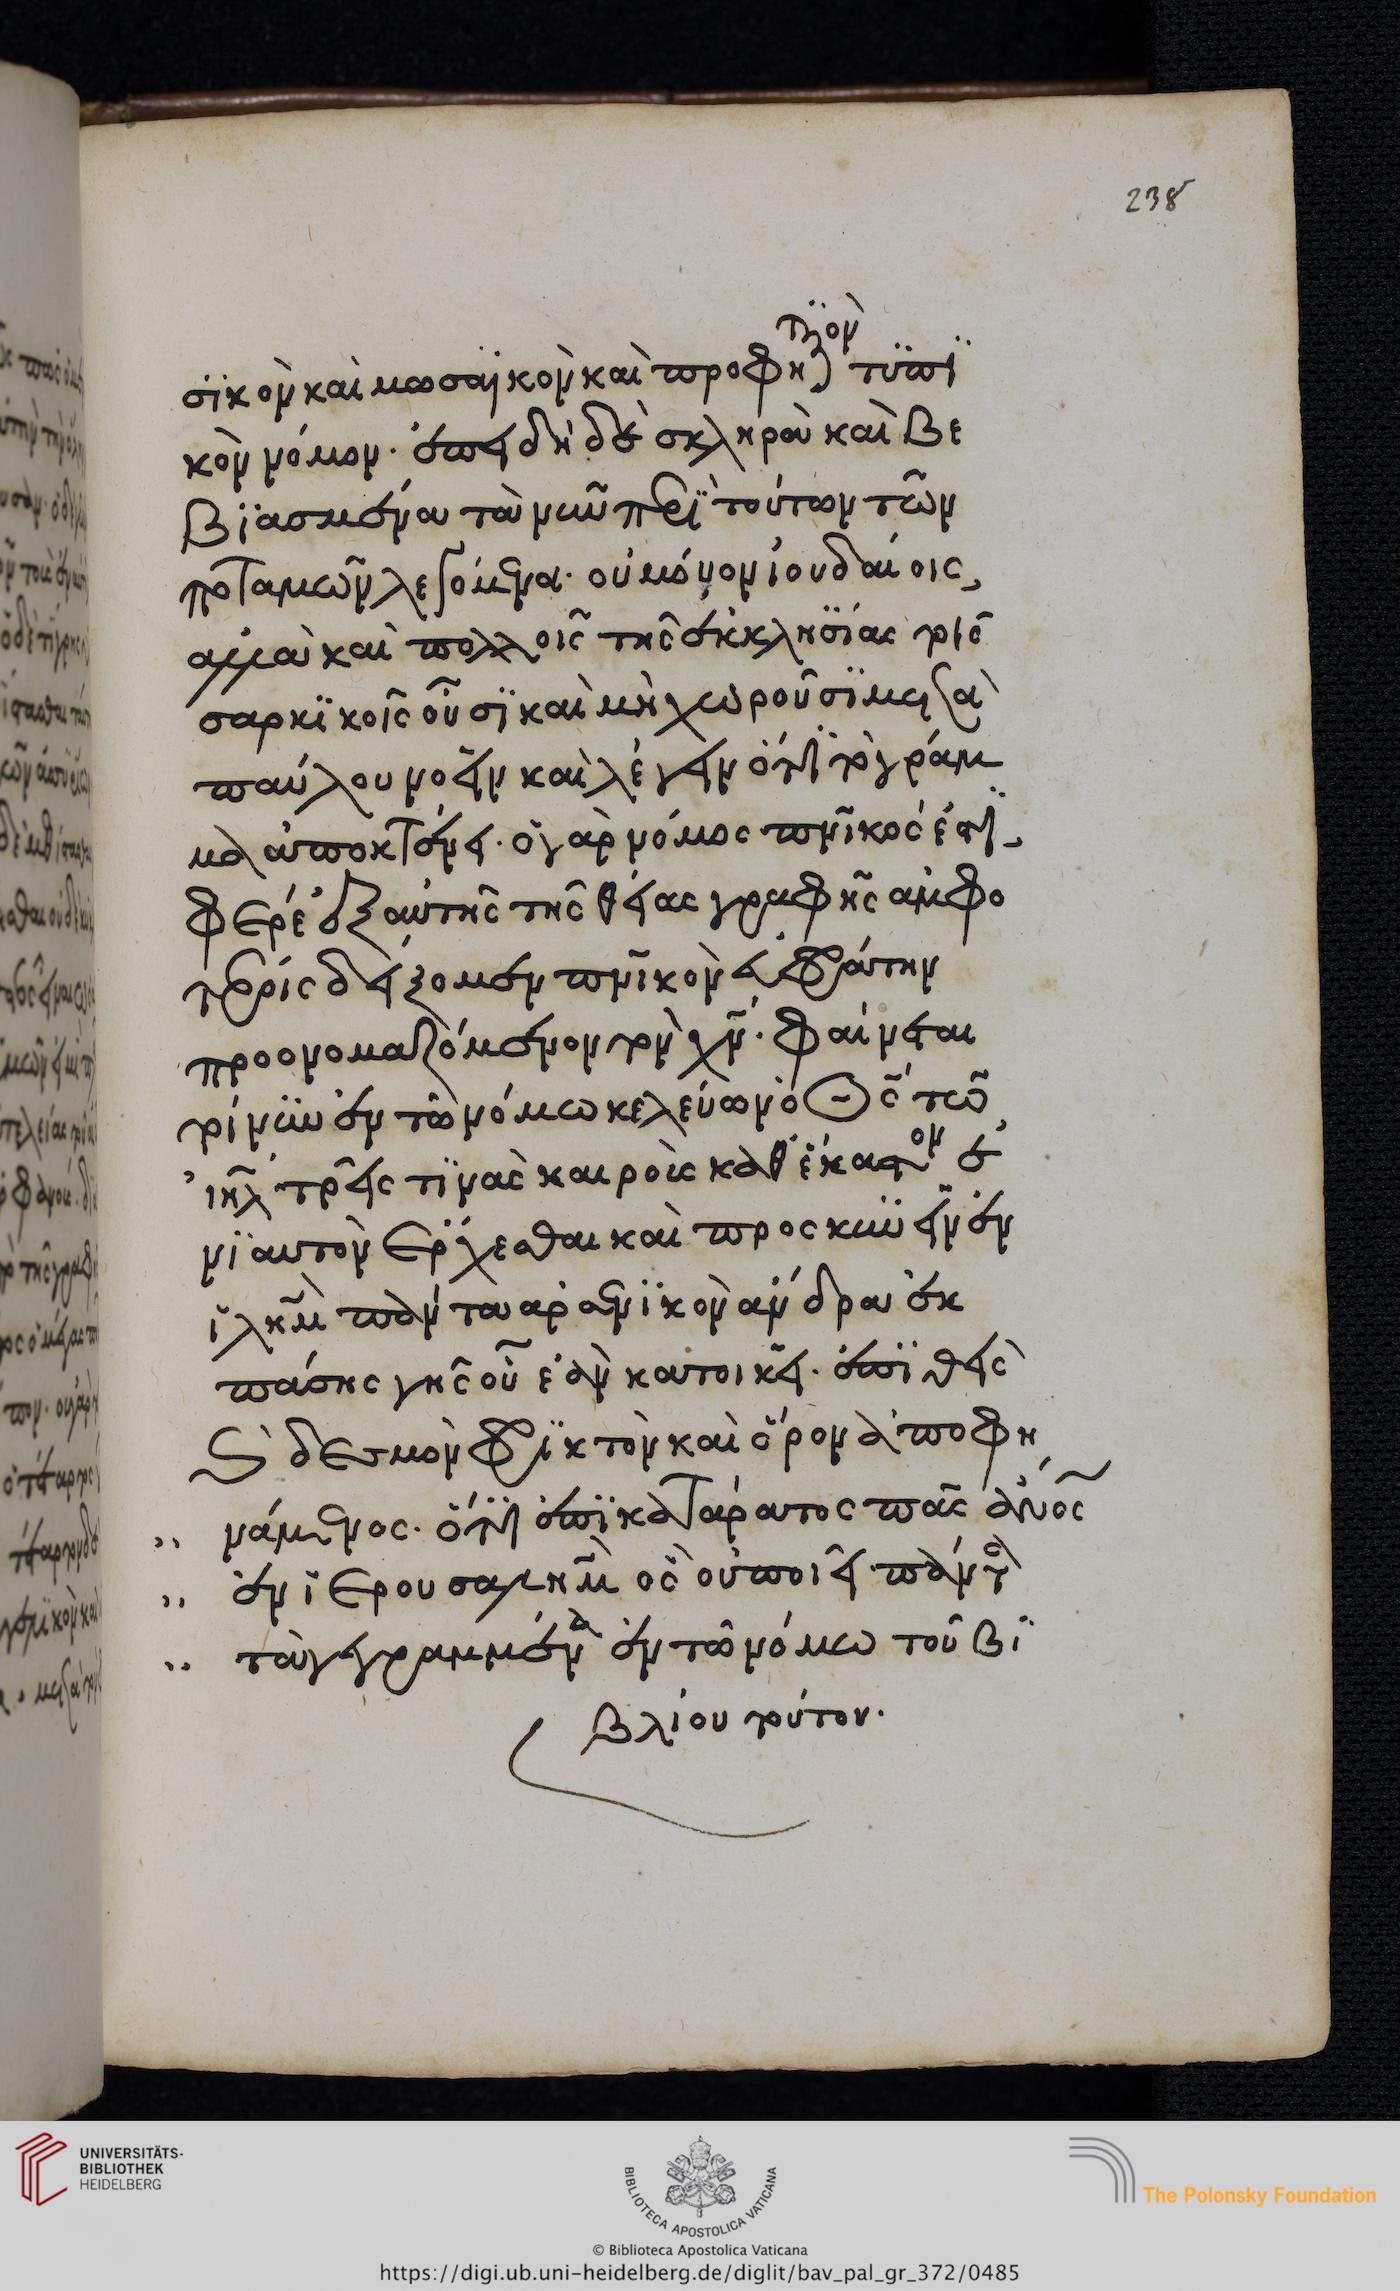 238
σϊκὸν καὶ μωσαϊκὸν καὶ προφητικὸν τϋπϊ
κὸν νόμον· ἐπεὶ δὴ δὲ σκληρὰ καὶ βε
βϊασμένα τὰ νῦν περὶ τούτων τῶν
ποταμῶν λεγόμενα· οὐ μόνον ἰουδαίοις,
ἀλλὰ καὶ πολλοῖς τῆς ἐκκλησϊίας τοῖς
σαρκϊκοῖς οὖσϊ καὶ μὴ χωροῦσϊ μετὰ
παύλου νοεῖν καὶ λέγειν ὅτι τὸ γράμ
μα ἀποκτένει· ὁ γὰρ νόμος πνϊκός ἐστϊ,
φέρε ἐξ αὐτῆς τῆς θείας γραφῆς ἀμφο
τέροις δείξομεν πνϊκὸν εὐφράτην
προονομαζόμενον τὸν χν· φαίνεται
τοίνυν ἐν τῶ νόμω κελεύων ὁ θς τῶ
ιηλ τρεῖς τϊνὰς καιροὺς καθ' ἕκαστον ἐ
νϊαυτὸν ἔρχεσθαι καὶ προσκυνεῖν ἐν
ἱλημ πάντα ἀρσενϊκὸν ἄνδρα ἐκ
πάσης γῆς οὗ ἐὰν κατοικεῖ· ἐπϊθεὶς
δεσμὸν φρϊκτὸν καὶ ὅρον ἀποφη
νάμενος· ὅτι ἐπϊκατάρατος πᾶς ἀνος
ἐν ἱερουσαλημ ὃς οὐ ποιεῖ πάντα
τὰ γεγραμμένα ἐν τῶ νόμω τοῦ βϊ
βλίου τούτου.
UNIVERSITÄTS-
BIBLIOTHEK
HEIDELBERG
BIBLIOTECA APOSTOLICA VATICANA
The Polonsky Foundation
© Biblioteca Apostolica Vaticana
https://digi.ub.uni-heidelberg.de/diglit/bav_pal_gr_372/0485